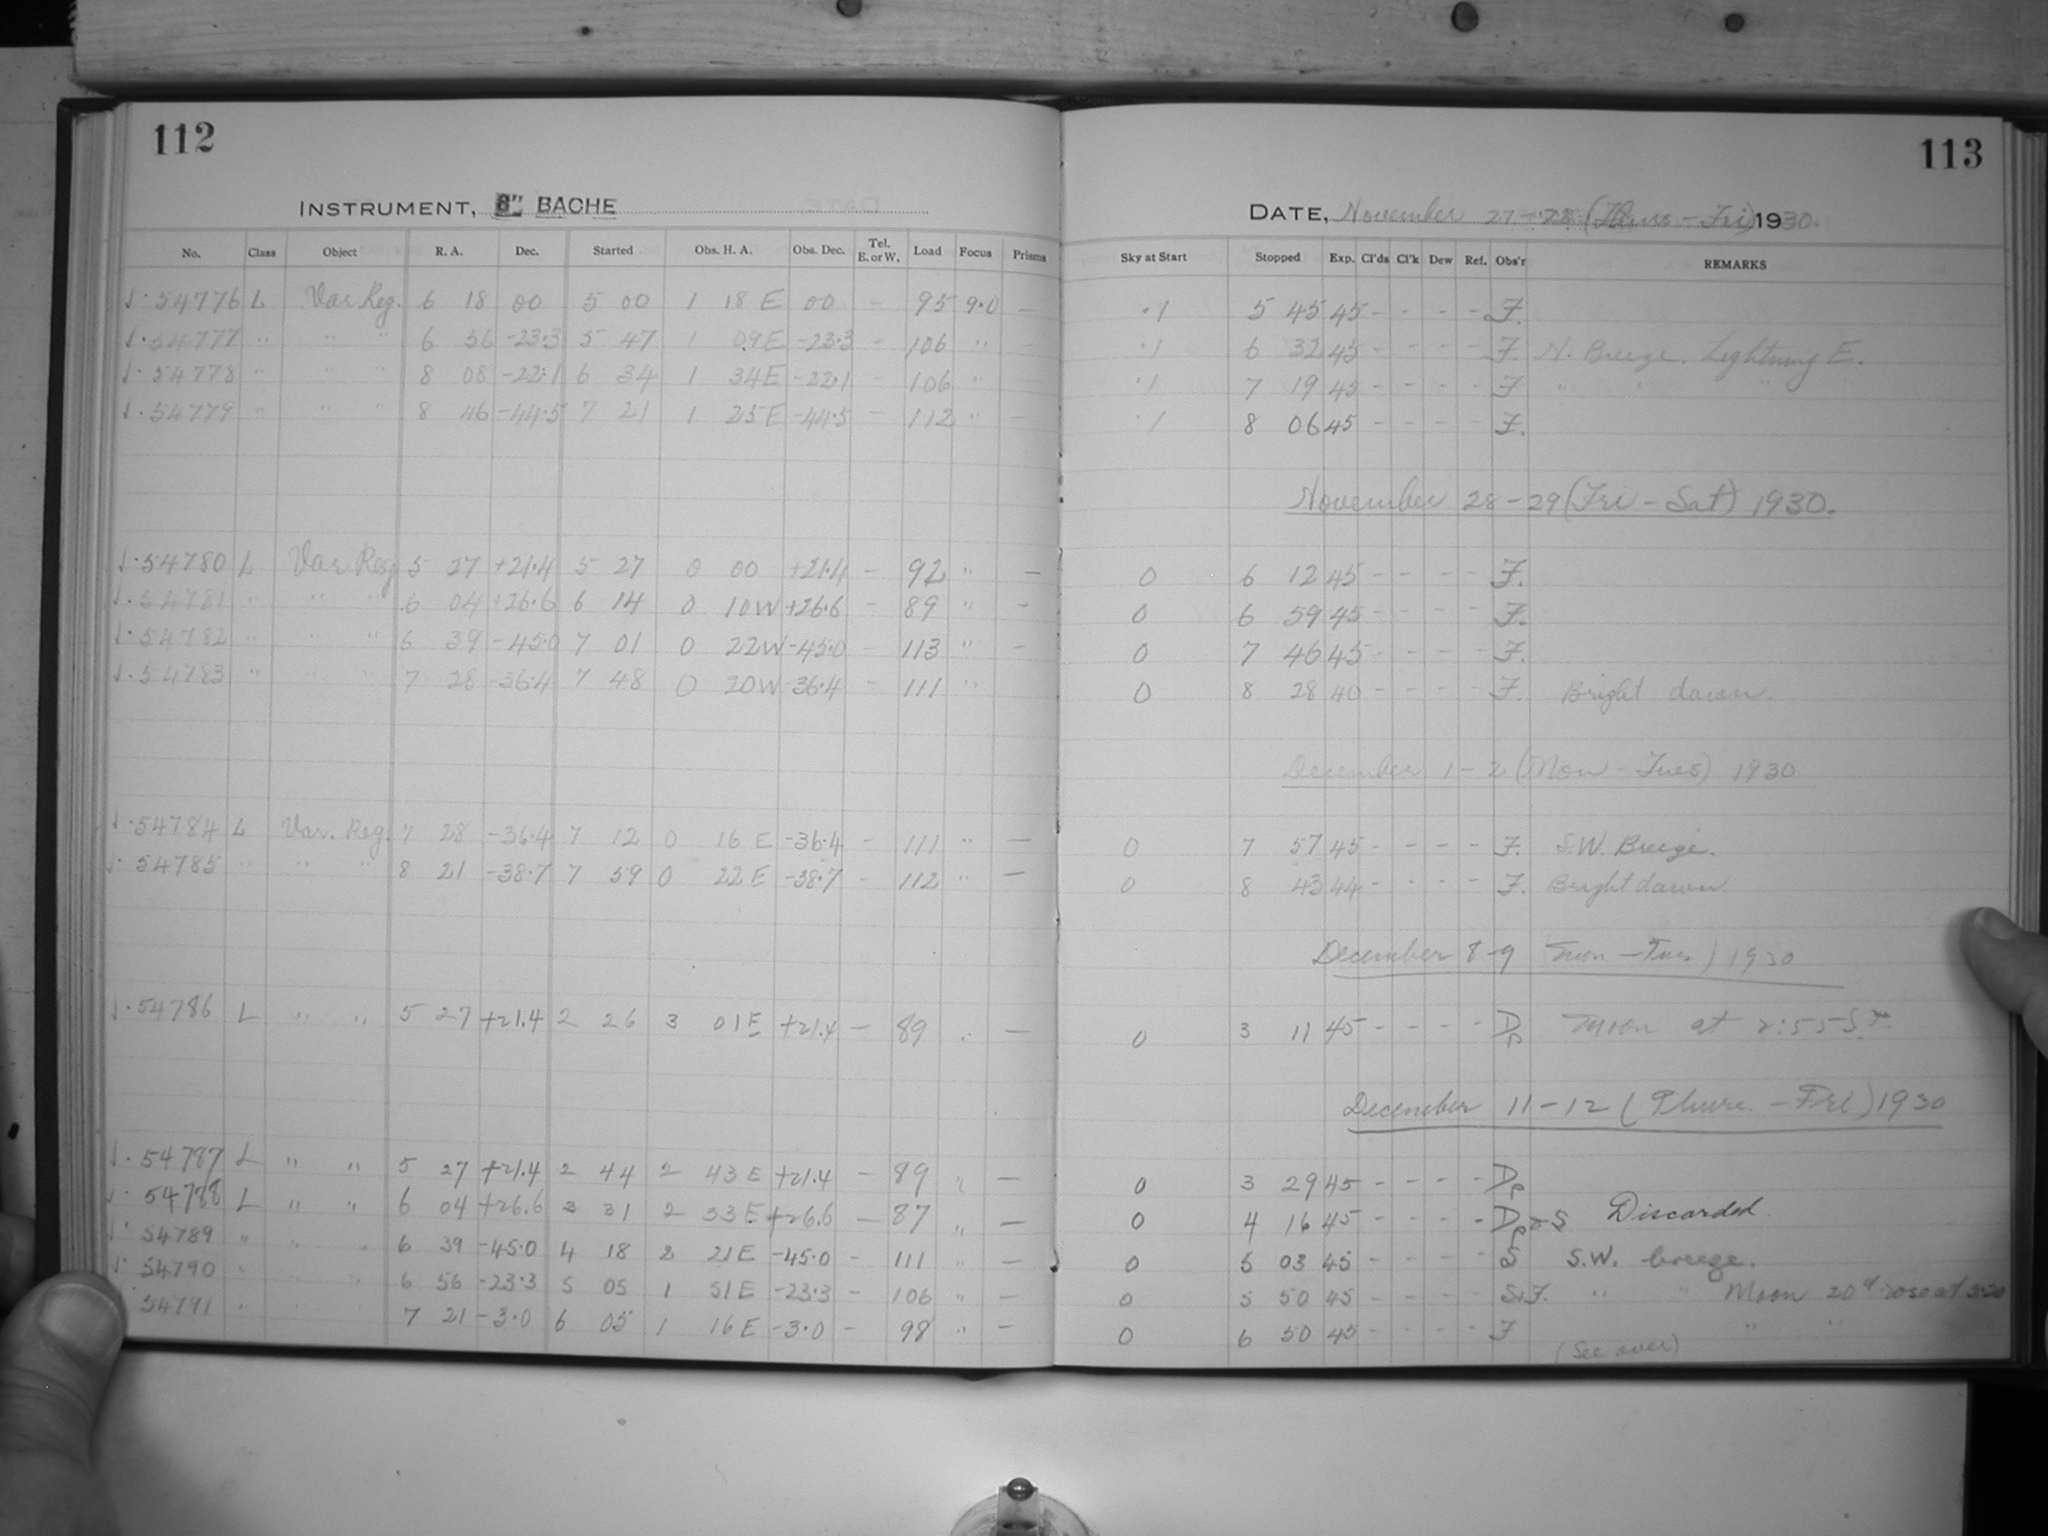 112
INSTRUMENT, 8" BACHE
No. Class Object R. A. Dec. Started Obs. H. A. Obs. Dec. Tel. E. or W. Load Focus Prisms
54776 L Var Reg. 6 18 00 5 00 1 18 E 00 - 95 9.0 -
54777 " " " 6 56 -23.3 5 47 1 09 E -23.3 - 106 " -
54778 " " " 8 08 -22.1 6 34 1 34 E -22.1 - 106 " -
54779 " " " 8 46 -44.5 7 21 1 25 E -44.5 - 112 " -
54780 L Var Reg 5 27 +21.4 5 27 0 00 +21.4 - 92 " -
54781 " " " 6 04 +26.6 6 14 0 10 W +26.6 - 89 " -
54782 " " " 6 39 -45.0 7 01 0 22 W -45.0 - 113 " -
54783 " " " 7 28 -36.4 7 48 0 20 W -36.4 - 111 "
54784 L Var. Reg. 7 28 -36.4 7 12 0 16 E -36.4 - 111 " -
54785 " " " 8 21 -38.7 7 59 0 22 E -38.7 - 112 " -
54786 L " " 5 27 +21.4 2 26 3 01 E +21.4 - 89 " -
54787 L " " 5 27 +21.4 2 44 2 43 E +21.4 - 89 " -
54788 L " " 6 04 +26.6 3 31 2 33 E +26.6 - 87 " -
54789 " " " 6 39 -45.0 4 18 2 21 E -45.0 - 111 " -
54790 " " " 6 56 -23.3 5 05 1 51 E -23.3 - 106 " -
54791 " " " 7 21 -3.0 6 05 1 16 E -3.0 - 98 " -
113
DATE, November 27-28 (Thurs - Fri) 1930.
Sky at Start Stopped Exp. Cl'ds Cl'k Dew Ref. Obs'r REMARKS
.1 5 45 45 - - - - F.
.1 6 32 45 - - - - F. N. Breeze. Lightning E.
.1 7 19 45 - - - - F " " " "
.1 8 06 45 - - - - F.
November 28-29 (Fri - Sat) 1930.
0 6 12 45 - - - - F.
0 6 59 45 - - - - F.
0 7 46 45 - - - - F.
0 8 28 40 - - - - F. Bright dawn.
December 1-2 (Mon - Tues) 1930
0 7 57 45 - - - - F. S.W. Breeze.
0 8 43 44 - - - - F. Bright dawn
December 8-9 (Mon - Tues) 1930
0 3 11 45 - - - - Dp Moon at 2:55 S.T.
December 11-12 (Thurs. - Fri) 1930
0 3 29 45 - - - - Dp
0 4 16 45 - - - - Dp & S Discarded.
0 5 03 45 - - - - S S.W. breeze.
0 5 50 45 - - - - S.F. " " Moon 20d rose at 5:20
0 6 50 45 - - - - F " "
(See over)